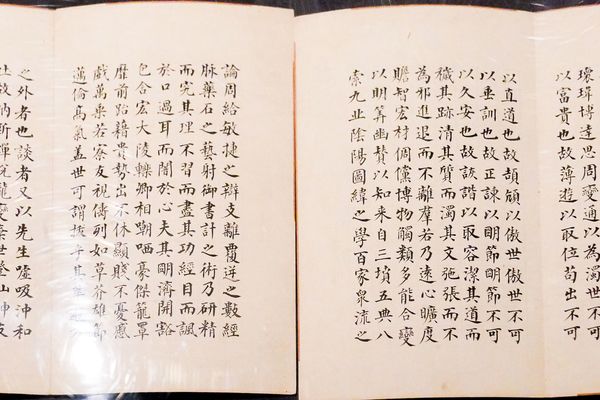 瓌瑋博達思周變通以為濁世不可
以富貴也故薄遊以取位苟出不可
以直道也故頡頏以傲世傲世不可
以垂訓也故正諫以明節明節不可
以久安也故詼諧以取容潔其道而
穢其跡清其質而濁其文弛張而不
為邪進退而不離羣若乃遠心曠度
贍智宏材倜儻博物觸類多能合變
以明筭幽贊以知來自三墳五典八
索九丘陰陽圖緯之學百家衆流之
論周給敏捷之辯支離覆逆之數經
脉藥石之藝射御書計之術乃研精
而究其理不習而盡其功經目而諷
於口過耳而闇於心夫其明濟開豁
包含宏大陵轢卿相嘲哂豪傑籠罩
靡前跆籍貴勢出不休顯賤不憂慼
戲萬乘若寮友視儔列如草芥雄節
邁倫高氣蓋世可謂拔乎其
之外者也談者又以先生噓吸沖和
吐故納新蟬蛻龍變棄世登仙神友